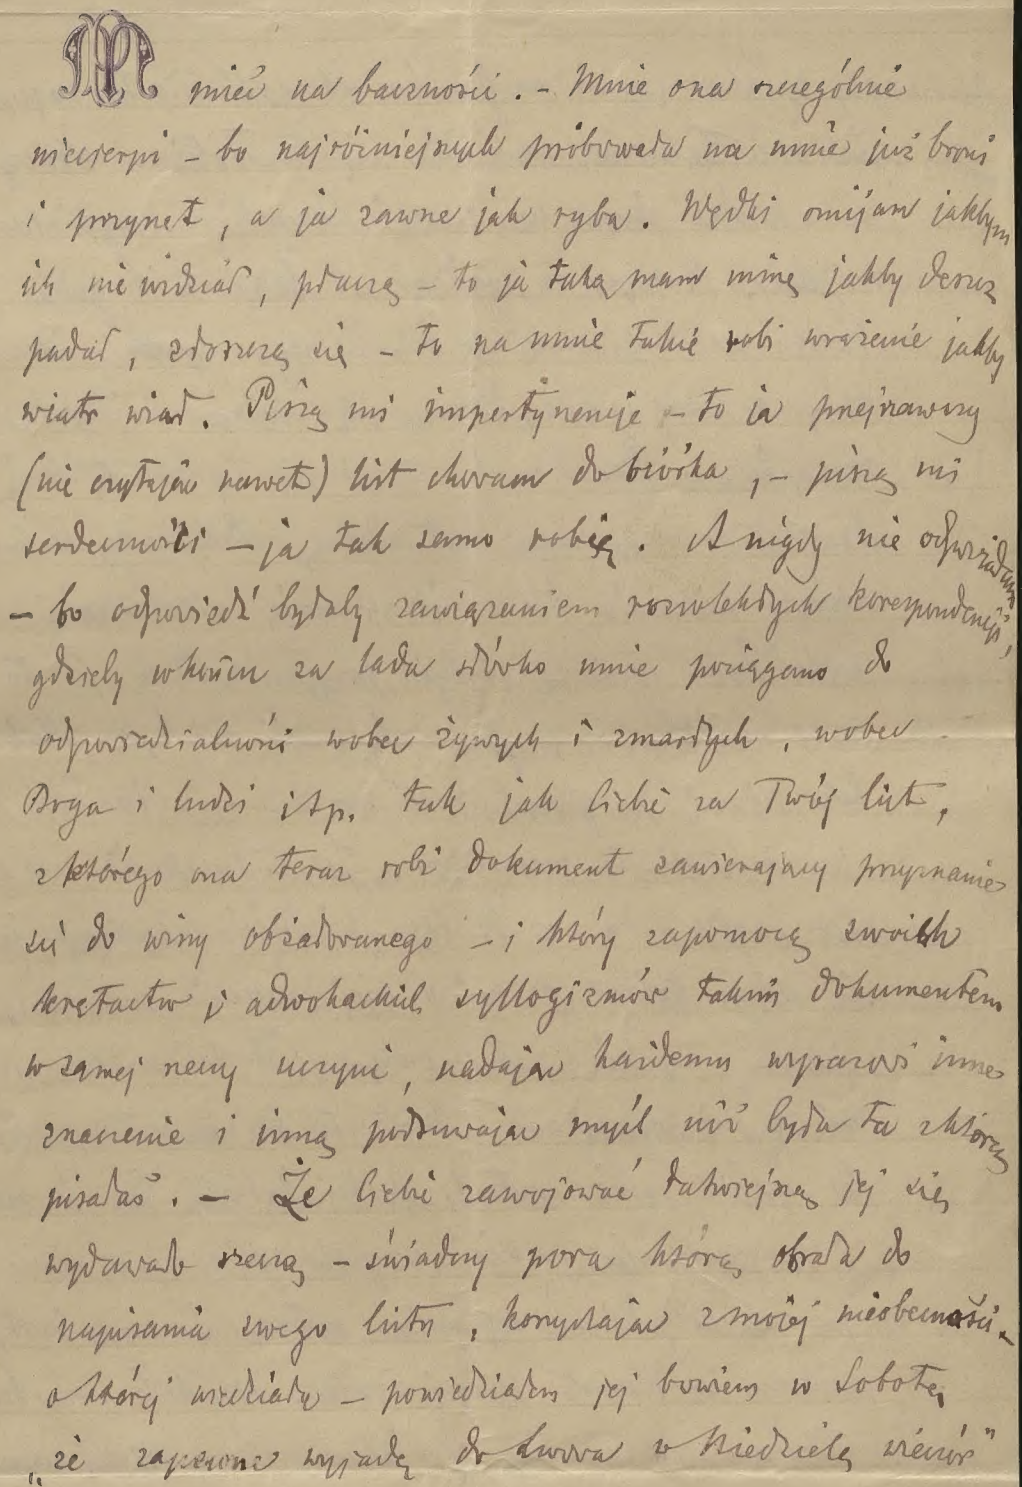 mieć na baczności. - Mnie ona szczególnie
niecierpi - bo najróżniejszych próbowała na mnie już broni
i przynęt, a ja zawsze jak ryba. Wędki omijam jakbym
ich nie widział, płaczą - to ja taką mam minę jakby deszcz
padał, złoszczą się - to na mnie takie robi wrażenie jakby
wiatr wiał. Piszą mi impertynencje - to ja przejrzawszy
(nie czytając nawet) list chowam do biórka, - piszą mi
serdeczności - ja tak samo robię. A nigdy nie odpowiadam
- bo odpowiedź byłaby zawiązaniem rozwlekłych korespondencji,
gdzieby wkońcu za lada słówko mnie pociągano do
odpowiedzialności wobec żywych i zmarłych, wobec
Boga i ludzi itp. tak jak Ciebie za Twój list,
z którego ona teraz robi dokument zawierający przyznanie
się do winy obżałowanego - i który zapomocą swoich
krętactw i adwokackich syllogizmów takim dokumentem
w samej rzeczy uczyni, nadając każdemu wyrazowi inne
znaczenie i inną podsuwając myśl niż była ta z którą
pisałaś. - Że Ciebie zawojować łatwiejszą jej się
wydawało rzeczą - świadczy pora którą obrała do
napisania swego listu, korzystając z mojej nieobecności -
o której wiedziała - powiedziałem jej bowiem w Sobotę,
"że zapewne wyjadę do Lwowa w Niedzielę wieczór"